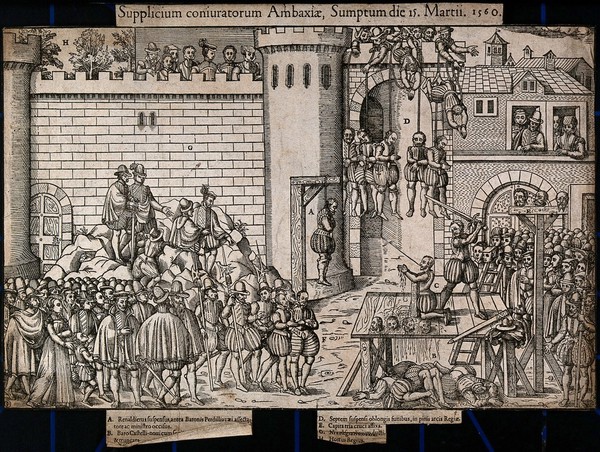 Supplicium coniuratorum Ambaxiæ, Sumptum die 15. Martii. 1560.
H
G
A
D
E
C
F
B
A. Renaldierus suspensus, antea Baronis Perdilliani a
tore ac ministro occisus.
B. Baro Castelli-noui cum
& truncatus
D. Septem suspensi oblongis funibus, in pinis arcis Regiæ.
E. Capita tria cruci affixa.
G.
H. Hortus Regius.